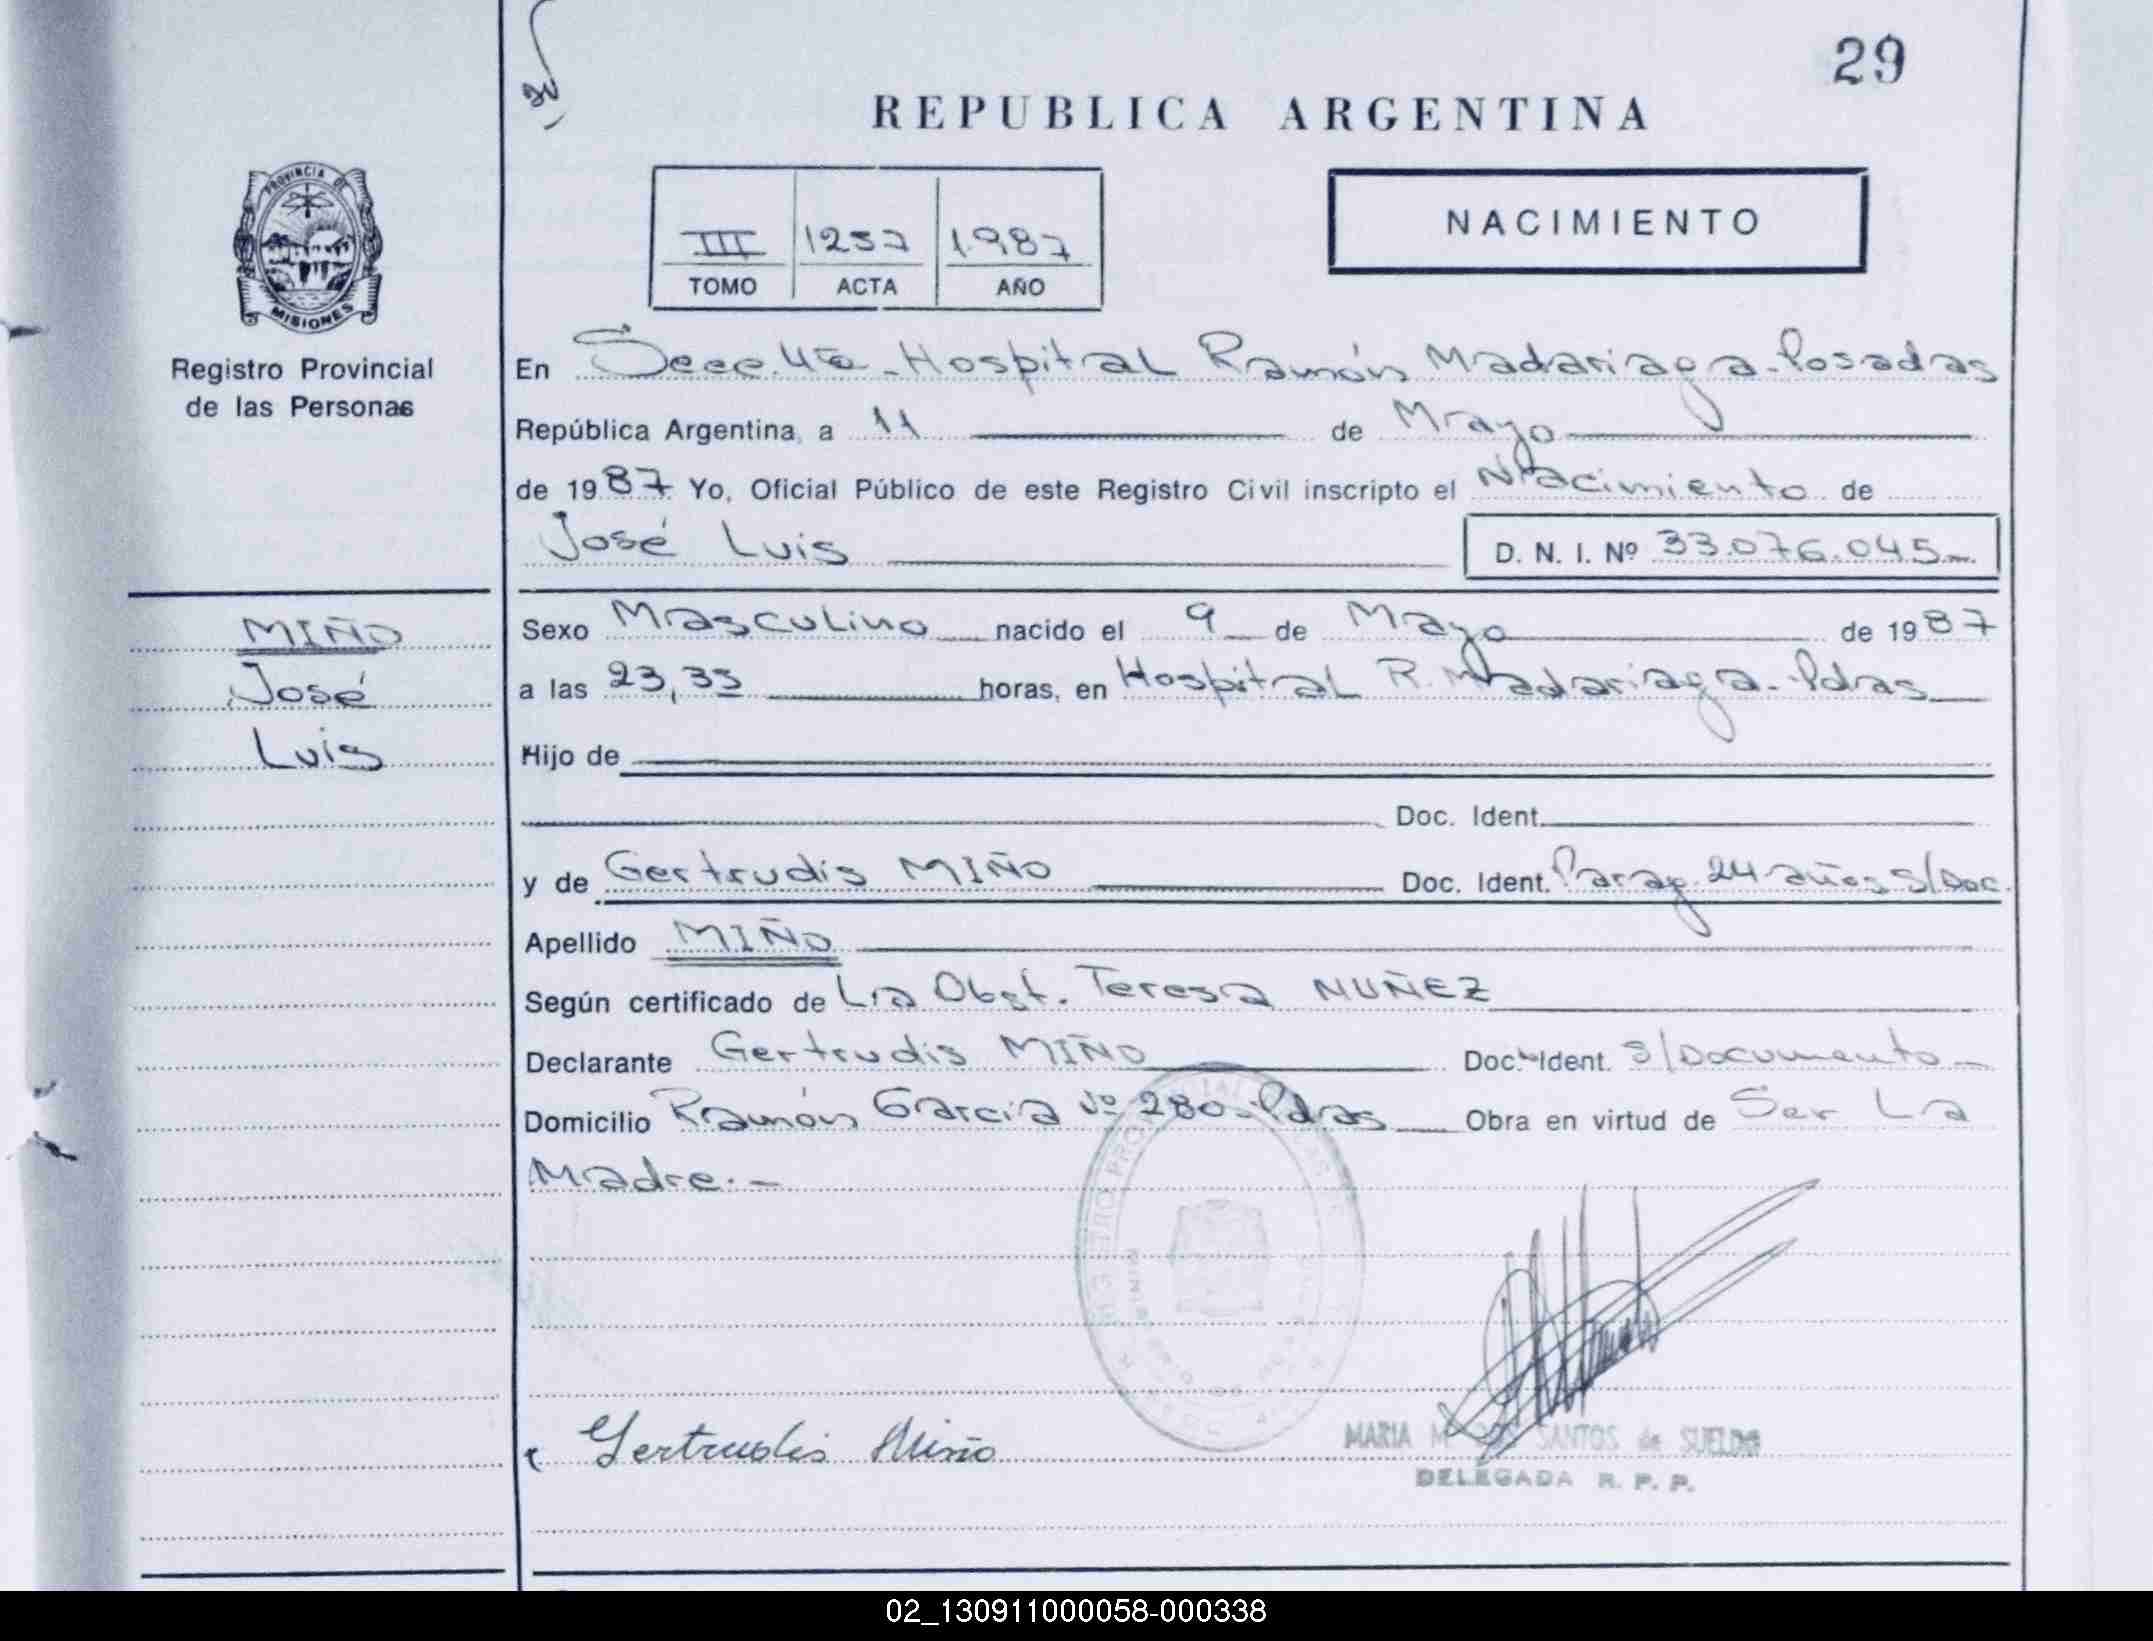 29
REPUBLICA ARGENTINA
NACIMIENTO
III 1257 1.987
TOMO ACTA AÑO
PROVINCIA DE
MISIONES
Registro Provincial
de las Personas
En Secc. 4ta - Hospital Ramón Madariaga - Posadas
República Argentina, a 11 de Mayo
de 1987 Yo, Oficial Público de este Registro Civil inscripto el Nacimiento de
José Luis D. N. I. Nº 33.076.045.-
MIÑO
José
Luis
Sexo Masculino nacido el 9 de Mayo de 1987
a las 23,35 horas, en Hospital R. Madariaga - Pdas
Hijo de
Doc. Ident.
y de Gertrudis MIÑO Doc. Ident. Parag. 24 años S/Doc.
Apellido MIÑO
Según certificado de La Obst. Teresa NUÑEZ
Declarante Gertrudis MIÑO Doc. Ident. S/Documento -
Domicilio Ramón García Nº 280 - Pdas Obra en virtud de Ser La
Madre.-
Gertrudis Miño
MARIA M. DOS SANTOS de SUELDO
DELEGADA R. P. P.
02_130911000058-000338